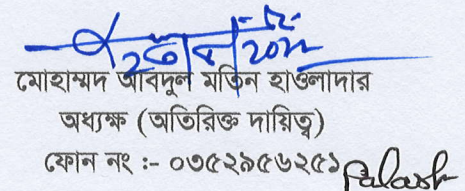 মোহাম্মদ আবদুল মতিন হাওলাদার
অধ্যক্ষ (অতিরিক্ত দায়িত্ব)
ফোন নং :- ০৩৫২৯৫৬২৫১
Palash